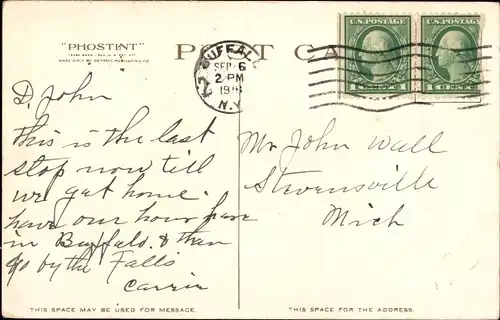 "PHOSTINT"
POST CARD
MADE ONLY BY DETROIT PUBLISHING CO.
BUFFALO
SEP 6
2 PM
N.Y.
U.S. POSTAGE
U.S. POSTAGE
1 CENT 1
1 CENT 1
D. John
This is the last
stop now till
we get home.
have one hour here
in Buffalo. & then
go by the Falls
Carrie
Mr John Wall
Stevensville
Mich
THIS SPACE MAY BE USED FOR MESSAGE.
THIS SPACE IS FOR THE ADDRESS.